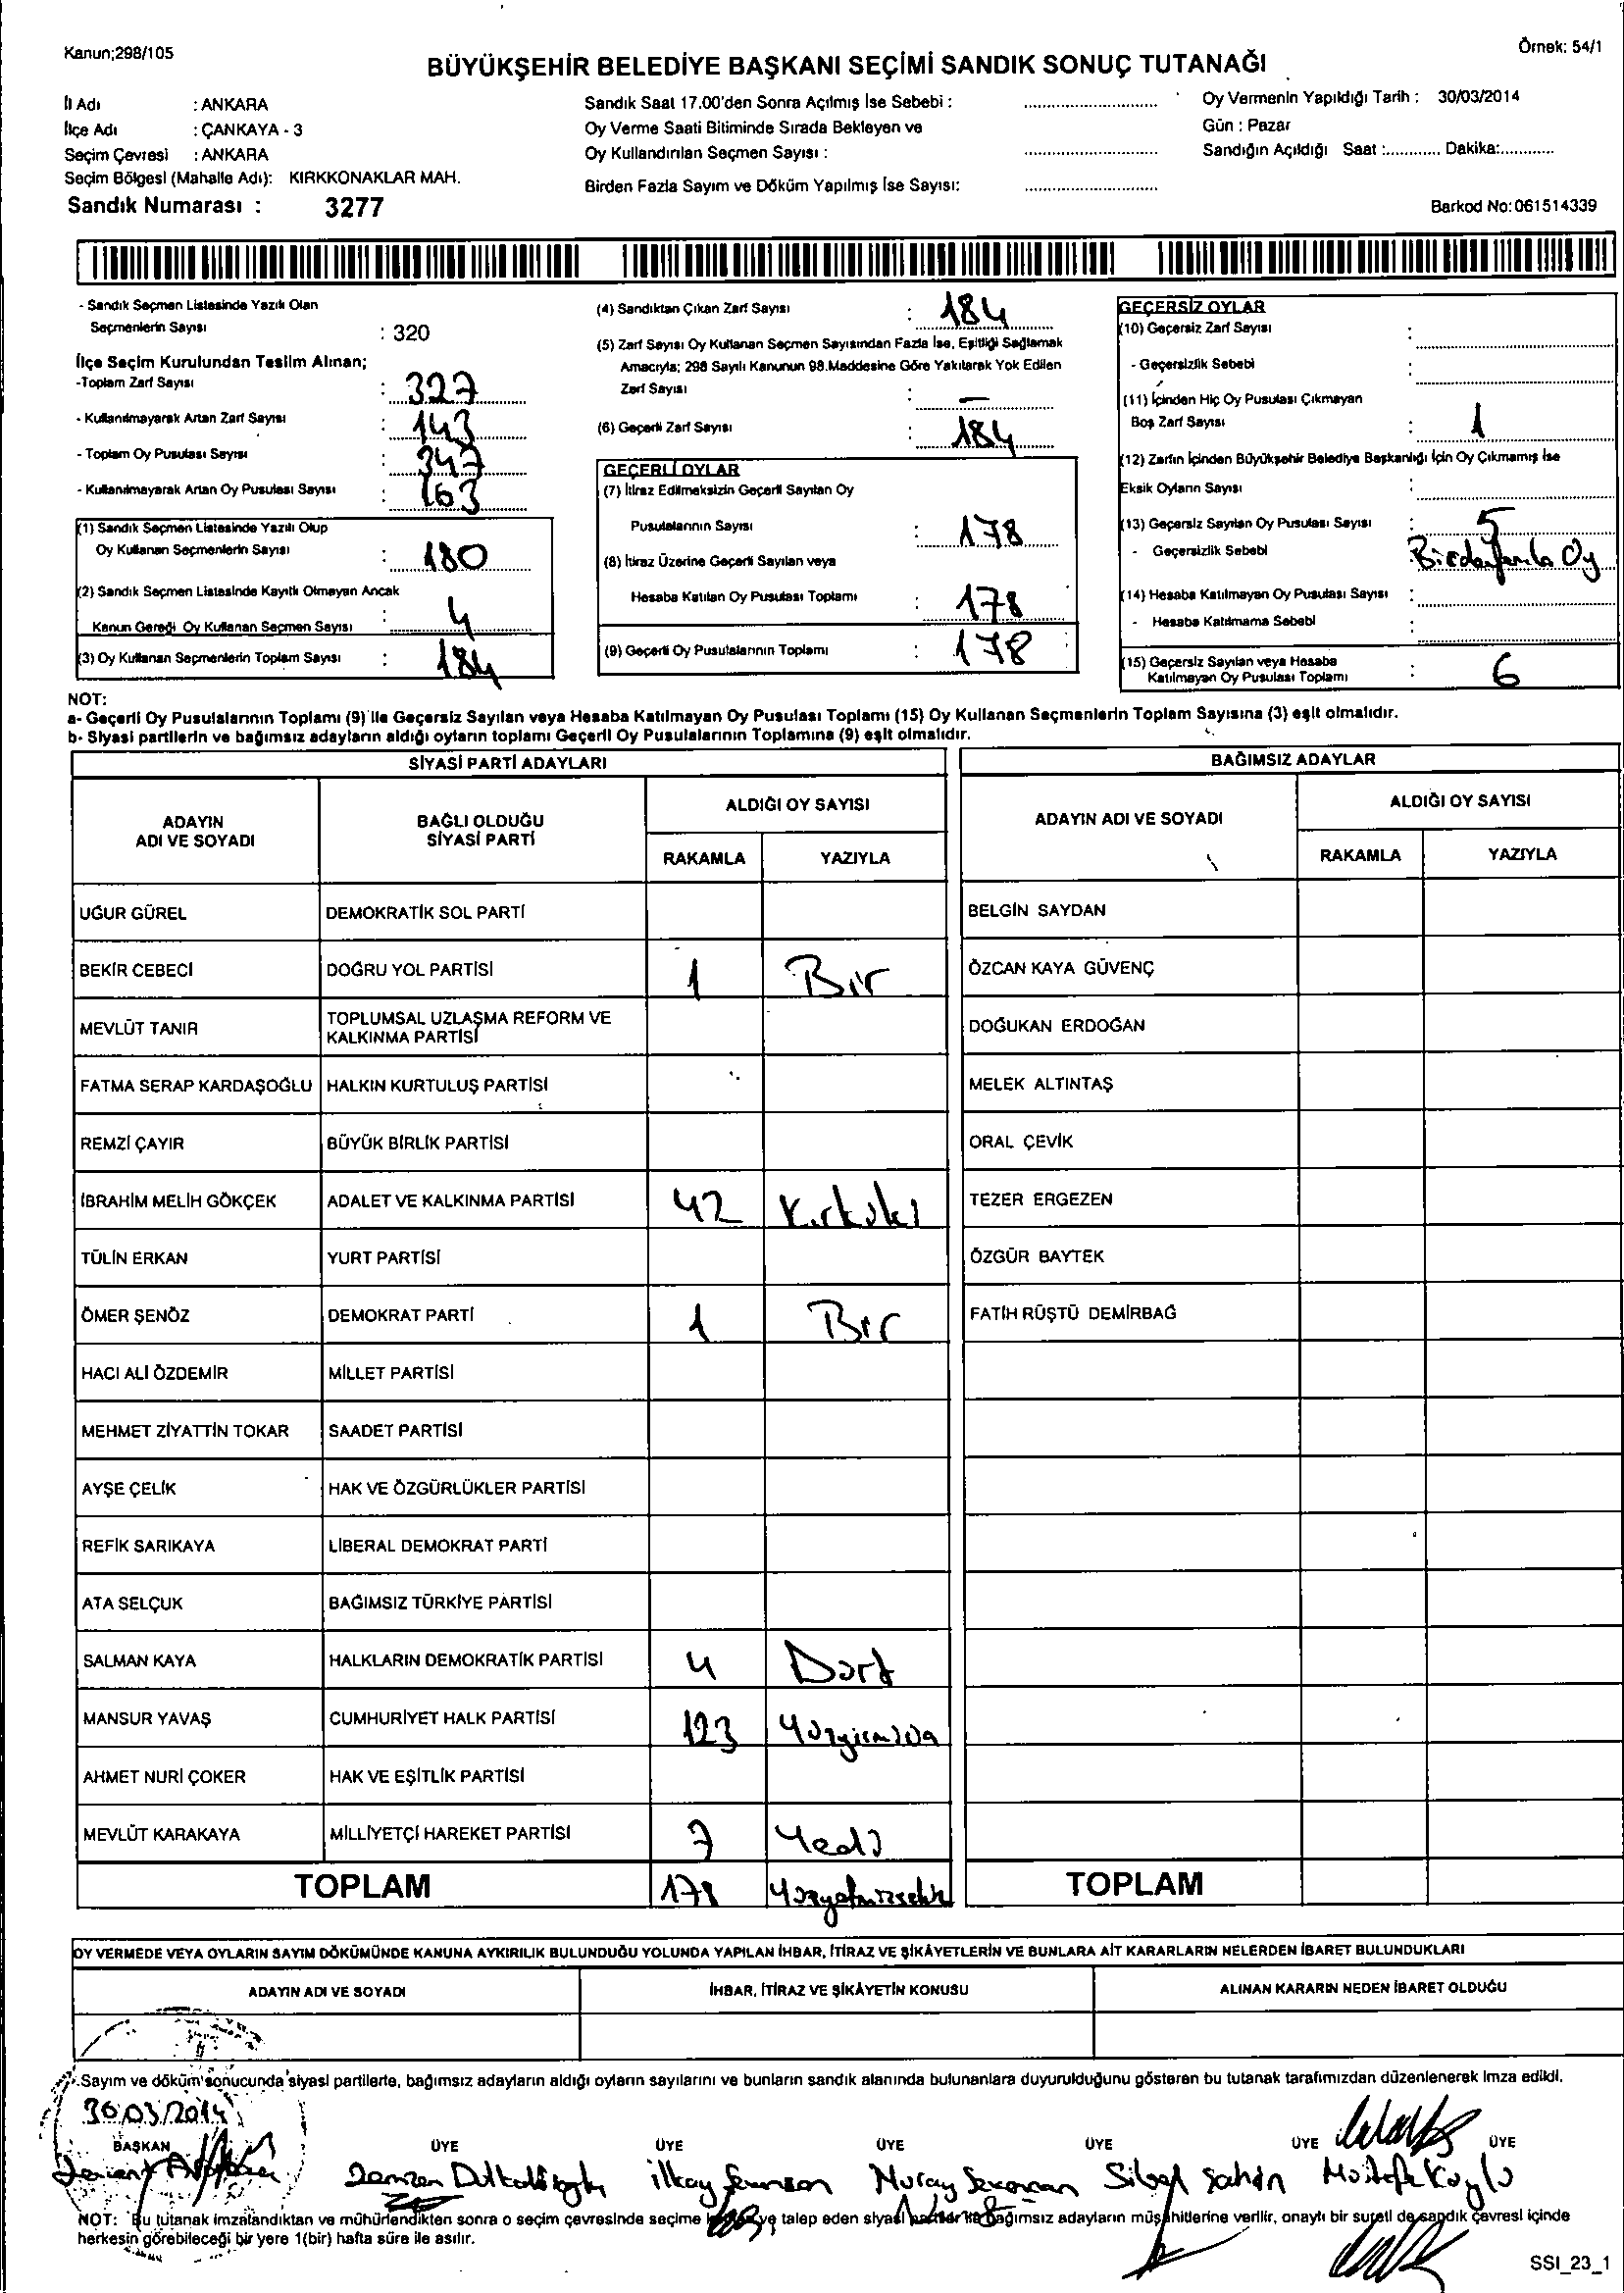 Kanun;298/105
Örnek: 54/1
BÜYÜKŞEHİR BELEDİYE BAŞKANI SEÇİMİ SANDIK SONUÇ TUTANAĞI
İl Adı : ANKARA
İlçe Adı : ÇANKAYA - 3
Seçim Çevresi : ANKARA
Seçim Bölgesi (Mahalle Adı): KIRKKONAKLAR MAH.
Sandık Numarası : 3277
Sandık Saat 17.00'den Sonra Açılmış İse Sebebi :
Oy Verme Saati Bitiminde Sırada Bekleyen ve
Oy Kullandırılan Seçmen Sayısı :
Birden Fazla Sayım ve Döküm Yapılmış İse Sayısı:
Oy Vermenin Yapıldığı Tarih : 30/03/2014
Gün : Pazar
Sandığın Açıldığı Saat :........... Dakika:...........
Barkod No:061514339
- Sandık Seçmen Listesinde Yazılı Olan
Seçmenlerin Sayısı : 320
İlçe Seçim Kurulundan Teslim Alınan;
-Toplam Zarf Sayısı : 327
- Kullanılmayarak Artan Zarf Sayısı : 143
- Toplam Oy Pusulası Sayısı : 347
- Kullanılmayarak Artan Oy Pusulası Sayısı : 163
(1) Sandık Seçmen Listesinde Yazılı Olup
Oy Kullanan Seçmenlerin Sayısı : 180
(2) Sandık Seçmen Listesinde Kayıtlı Olmayan Ancak
Kanun Gereği Oy Kullanan Seçmen Sayısı : 4
(3) Oy Kullanan Seçmenlerin Toplam Sayısı : 184
(4) Sandıktan Çıkan Zarf Sayısı : 184
(5) Zarf Sayısı Oy Kullanan Seçmen Sayısından Fazla İse, Eşitliği Sağlamak
Amacıyla; 298 Sayılı Kanunun 98.Maddesine Göre Yakılarak Yok Edilen
Zarf Sayısı : —
(6) Geçerli Zarf Sayısı : 184
GEÇERLİ OYLAR
(7) İtiraz Edilmeksizin Geçerli Sayılan Oy
Pusulalarının Sayısı : 178
(8) İtiraz Üzerine Geçerli Sayılan veya
Hesaba Katılan Oy Pusulası Toplamı : 178
(9) Geçerli Oy Pusulalarının Toplamı : 178
GEÇERSİZ OYLAR
(10) Geçersiz Zarf Sayısı :
- Geçersizlik Sebebi :
(11) İçinden Hiç Oy Pusulası Çıkmayan
Boş Zarf Sayısı : 1
(12) Zarfın İçinden Büyükşehir Belediye Başkanlığı İçin Oy Çıkmamış İse
Eksik Oyların Sayısı :
(13) Geçersiz Sayılan Oy Pusulası Sayısı : 5
- Geçersizlik Sebebi : Birden fazla Oy
(14) Hesaba Katılmayan Oy Pusulası Sayısı :
- Hesaba Katılmama Sebebi :
(15) Geçersiz Sayılan veya Hesaba
Katılmayan Oy Pusulası Toplamı : 6
NOT:
a- Geçerli Oy Pusulalarının Toplamı (9) ile Geçersiz Sayılan veya Hesaba Katılmayan Oy Pusulası Toplamı (15) Oy Kullanan Seçmenlerin Toplam Sayısına (3) eşit olmalıdır.
b- Siyasi partilerin ve bağımsız adayların aldığı oyların toplamı Geçerli Oy Pusulalarının Toplamına (9) eşit olmalıdır.
SİYASİ PARTİ ADAYLARI
ADAYIN ADI VE SOYADI BAĞLI OLDUĞU SİYASİ PARTİ ALDIĞI OY SAYISI
RAKAMLA YAZIYLA
UĞUR GÜREL DEMOKRATİK SOL PARTİ
BEKİR CEBECİ DOĞRU YOL PARTİSİ 1 Bir
MEVLÜT TANIR TOPLUMSAL UZLAŞMA REFORM VE KALKINMA PARTİSİ
FATMA SERAP KARDAŞOĞLU HALKIN KURTULUŞ PARTİSİ
REMZİ ÇAYIR BÜYÜK BİRLİK PARTİSİ
İBRAHİM MELİH GÖKÇEK ADALET VE KALKINMA PARTİSİ 42 Kırkiki
TÜLİN ERKAN YURT PARTİSİ
ÖMER ŞENÖZ DEMOKRAT PARTİ 1 Bir
HACI ALİ ÖZDEMİR MİLLET PARTİSİ
MEHMET ZİYATTİN TOKAR SAADET PARTİSİ
AYŞE ÇELİK HAK VE ÖZGÜRLÜKLER PARTİSİ
REFİK SARIKAYA LİBERAL DEMOKRAT PARTİ
ATA SELÇUK BAĞIMSIZ TÜRKİYE PARTİSİ
SALMAN KAYA HALKLARIN DEMOKRATİK PARTİSİ 4 Dört
MANSUR YAVAŞ CUMHURİYET HALK PARTİSİ 123 Yüzyirmiüç
AHMET NURİ ÇOKER HAK VE EŞİTLİK PARTİSİ
MEVLÜT KARAKAYA MİLLİYETÇİ HAREKET PARTİSİ 7 Yedi
TOPLAM 178 Yüzyetmişsekiz
BAĞIMSIZ ADAYLAR
ADAYIN ADI VE SOYADI ALDIĞI OY SAYISI
RAKAMLA YAZIYLA
BELGİN SAYDAN
ÖZCAN KAYA GÜVENÇ
DOĞUKAN ERDOĞAN
MELEK ALTINTAŞ
ORAL ÇEVİK
TEZER ERGEZEN
ÖZGÜR BAYTEK
FATİH RÜŞTÜ DEMİRBAĞ
TOPLAM
OY VERMEDE VEYA OYLARIN SAYIM DÖKÜMÜNDE KANUNA AYKIRILIK BULUNDUĞU YOLUNDA YAPILAN İHBAR, İTİRAZ VE ŞİKÂYETLERİN VE BUNLARA AİT KARARLARIN NELERDEN İBARET BULUNDUKLARI
ADAYIN ADI VE SOYADI İHBAR, İTİRAZ VE ŞİKÂYETİN KONUSU ALINAN KARARIN NEDEN İBARET OLDUĞU
Sayım ve döküm sonucunda siyasi partilerle, bağımsız adayların aldığı oyların sayılarını ve bunların sandık alanında bulunanlara duyurulduğunu gösteren bu tutanak tarafımızdan düzenlenerek imza edildi.
30/03/2014
BAŞKAN ÜYE ÜYE ÜYE ÜYE ÜYE ÜYE
İlkay Nuray Sibel Şahin Mustafa
NOT: Bu tutanak imzalandıktan ve mühürlendikten sonra o seçim çevresinde seçime talep eden siyasi bağımsız adayların müşahitlerine verilir, onaylı bir sureti de sandık çevresi içinde
herkesin görebileceği bir yere 1(bir) hafta süre ile asılır.
SSI_23_1